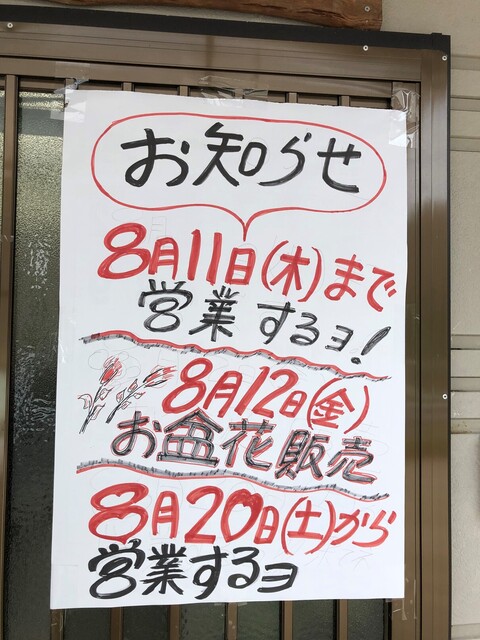 お知らせ
8月11日(木)まで
営業するヨ!
8月12日(金)
お盆花販売
8月20日(土)から
営業するヨ